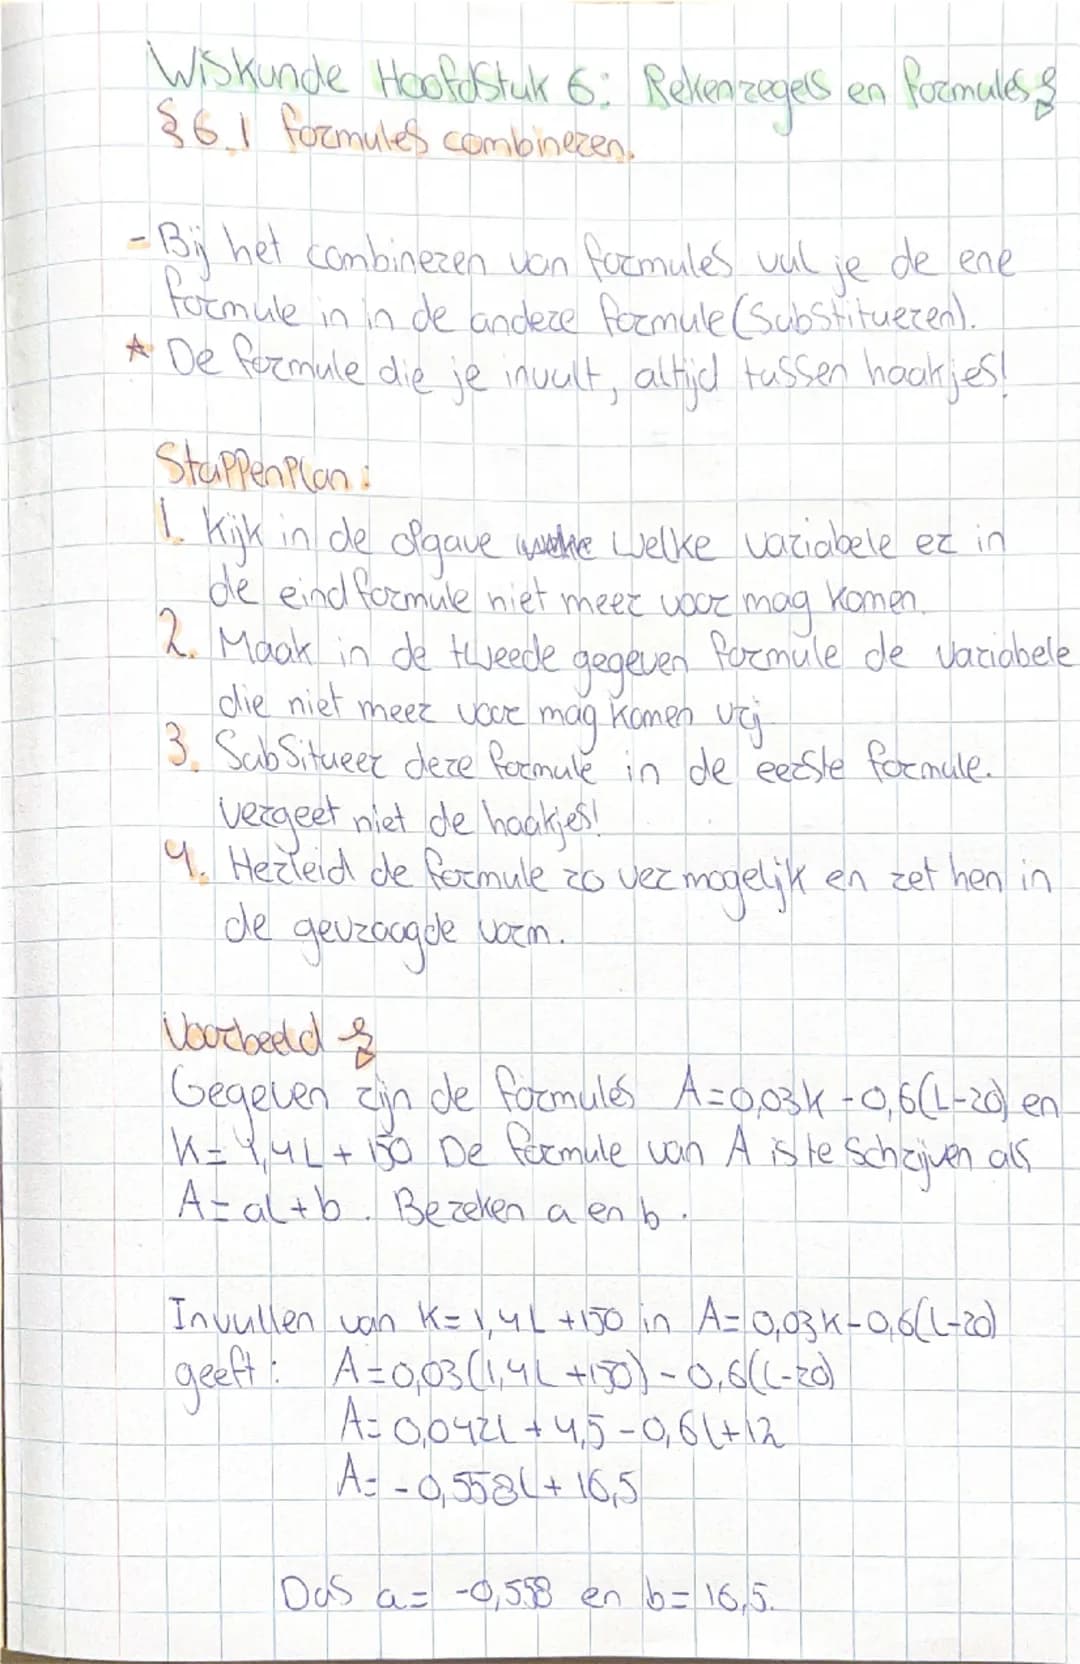 Wiskunde Hoofdstuk 6: Rekenregels en formules
§6.1 formules combineren.
- Bij het combineren van formules vul je de ene
formule in in de andere formule (Substitueren).
* De formule die je invult, altijd tussen haakjes!
Stappenplan:
1. Kijk in de opgave welke variabele er in
de eindformule niet meer voor mag komen.
2. Maak in de tweede gegeven formule de variabele
die niet meer voor mag komen vrij
3. SubSitueer deze formule in de eerste formule.
vergeet niet de haakjes!
4. Herleid de formule zo ver mogelijk en zet hen in
de gevraagde vorm.
Voorbeeld
Gegeven zijn de formules A=0,03K-0,6(L-20) en
K=1,4L+150 De formule van A is te schrijven als
A=aL+b. Bereken a en b.
Invullen van K=1,4L+150 in A=0,03K-0,6(L-20)
geeft: A=0,03(1,4L+150)-0,6(L-20)
A=0,042L+4,5-0,6L+12
A=-0,558L+16,5
Dus a=-0,558 en b=16,5.